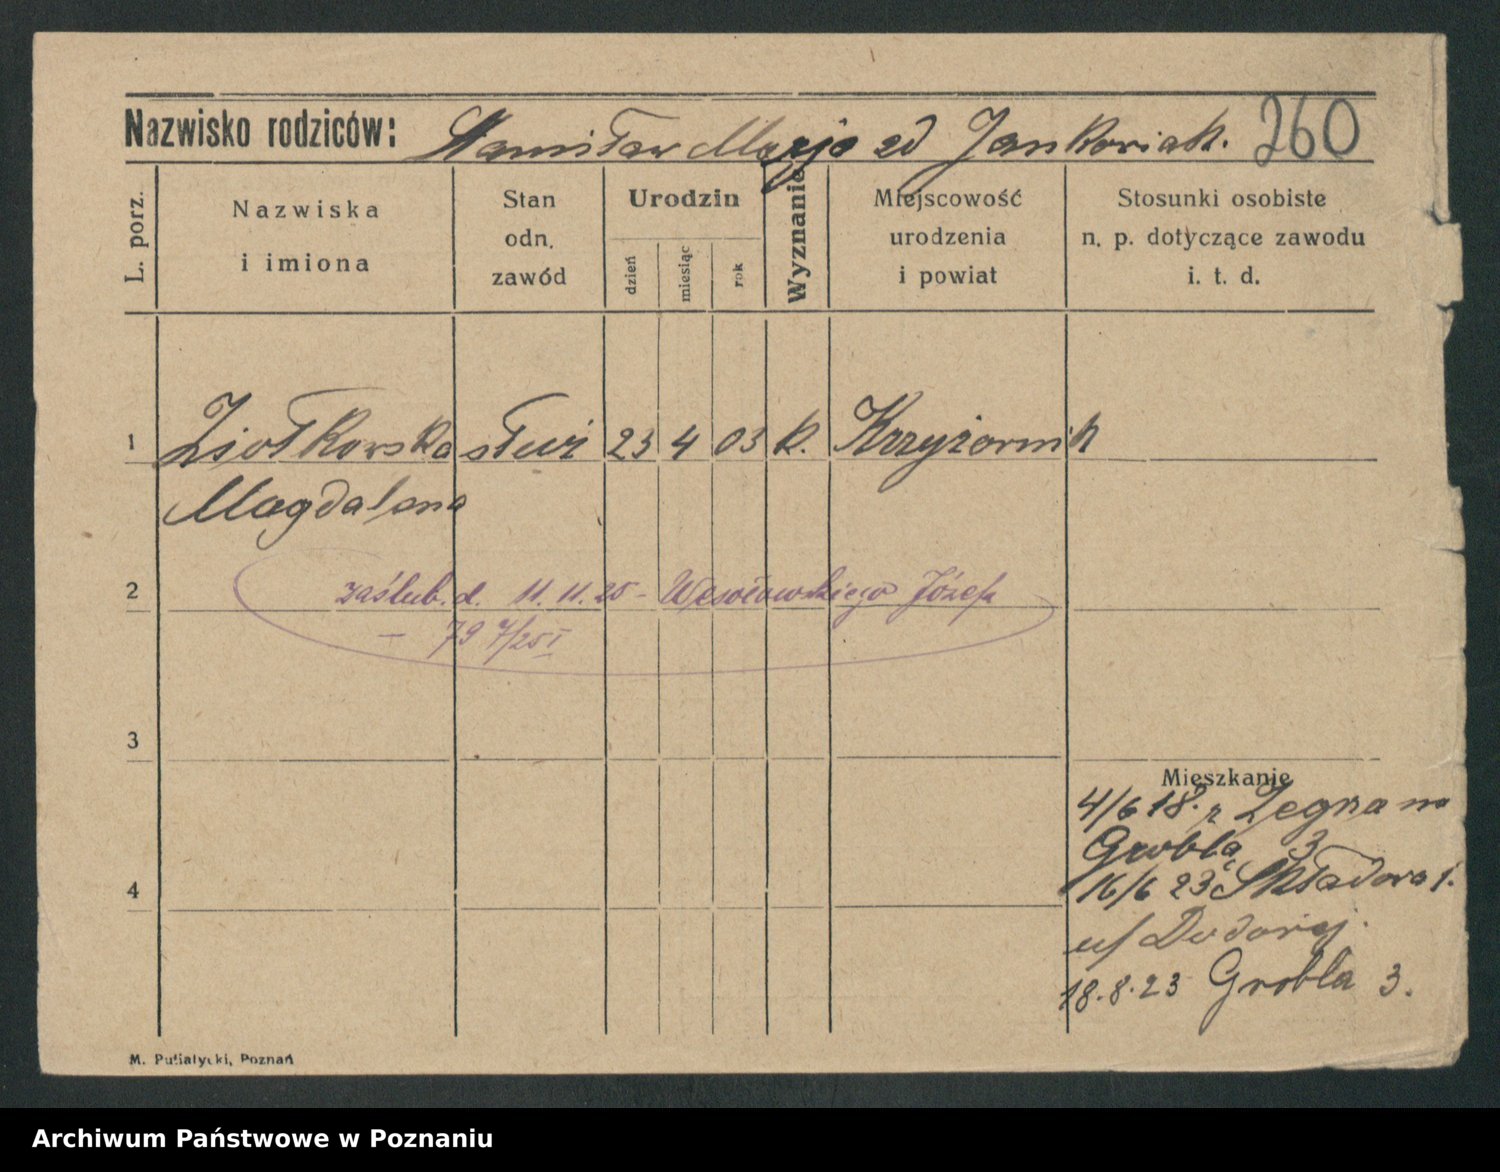 Nazwisko rodziców: Stanisław Marja zd Jankowiak. 260
L. porz.
Nazwiska
i imiona
Stan
odn.
zawód
Urodzin
dzień
miesiąc
rok
Wyznanie
Miejscowość
urodzenia
i powiat
Stosunki osobiste
n. p. dotyczące zawodu
i. t. d.
1 Ziołkowska służ 23 4 03 k. Krzyżownik
Magdalena
2 zaślub. d. 11.11.25 - Wesołowskiego Józefa
— 79 7/25 I
3
Mieszkanie
4/6 18. z Zegrza na
Grobla 3
16/6 23 Składowa 1.
4
u/
18.8.23 Grobla 3.
M. Putiatycki, Poznań
Archiwum Państwowe w Poznaniu